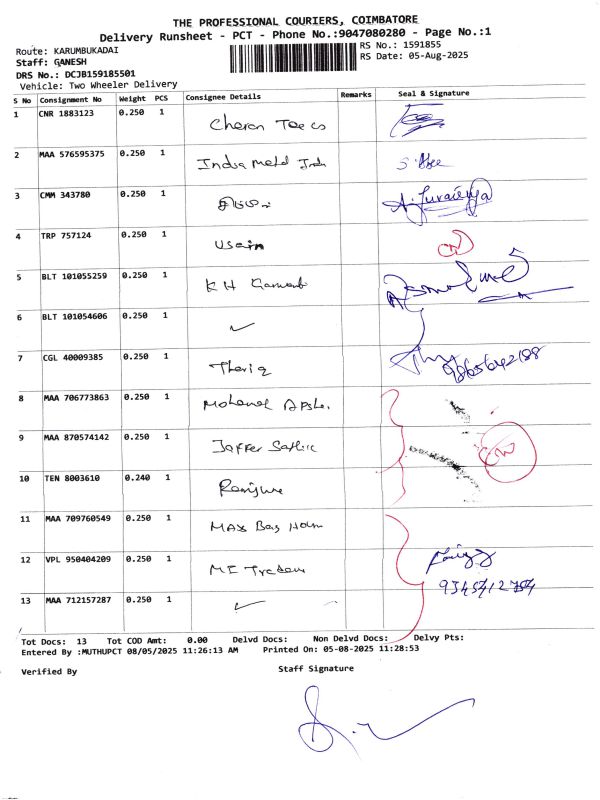 THE PROFESSIONAL COURIERS, COIMBATORE
Delivery Runsheet - PCT - Phone No.:9047080280 - Page No.:1
Route: KARUMBUKADAI
RS No.: 1591855
Staff: GANESH
RS Date: 05-Aug-2025
DRS No.: DCJB159185501
Vehicle: Two Wheeler Delivery
S No Consignment No Weight PCS Consignee Details Remarks Seal & Signature
1 CNR 1883123 0.250 1
2 MAA 576595375 0.250 1 India Metal
3 CMM 343780 0.250 1
4 TRP 757124 0.250 1 Usain
5 BLT 101055259 0.250 1 K H
6 BLT 101054606 0.250 1 ✓
7 CGL 40009385 0.250 1 Thariq
8 MAA 706773863 0.250 1
9 MAA 870574142 0.250 1
10 TEN 8003610 0.240 1
11 MAA 709760549 0.250 1 MAX Bag
12 VPL 950404209 0.250 1 Traders
13 MAA 712157287 0.250 1 ✓
Tot Docs: 13 Tot COD Amt: 0.00 Delvd Docs: Non Delvd Docs: Delvy Pts:
Entered By :MUTHUPCT 08/05/2025 11:26:13 AM Printed On: 05-08-2025 11:28:53
Verified By Staff Signature